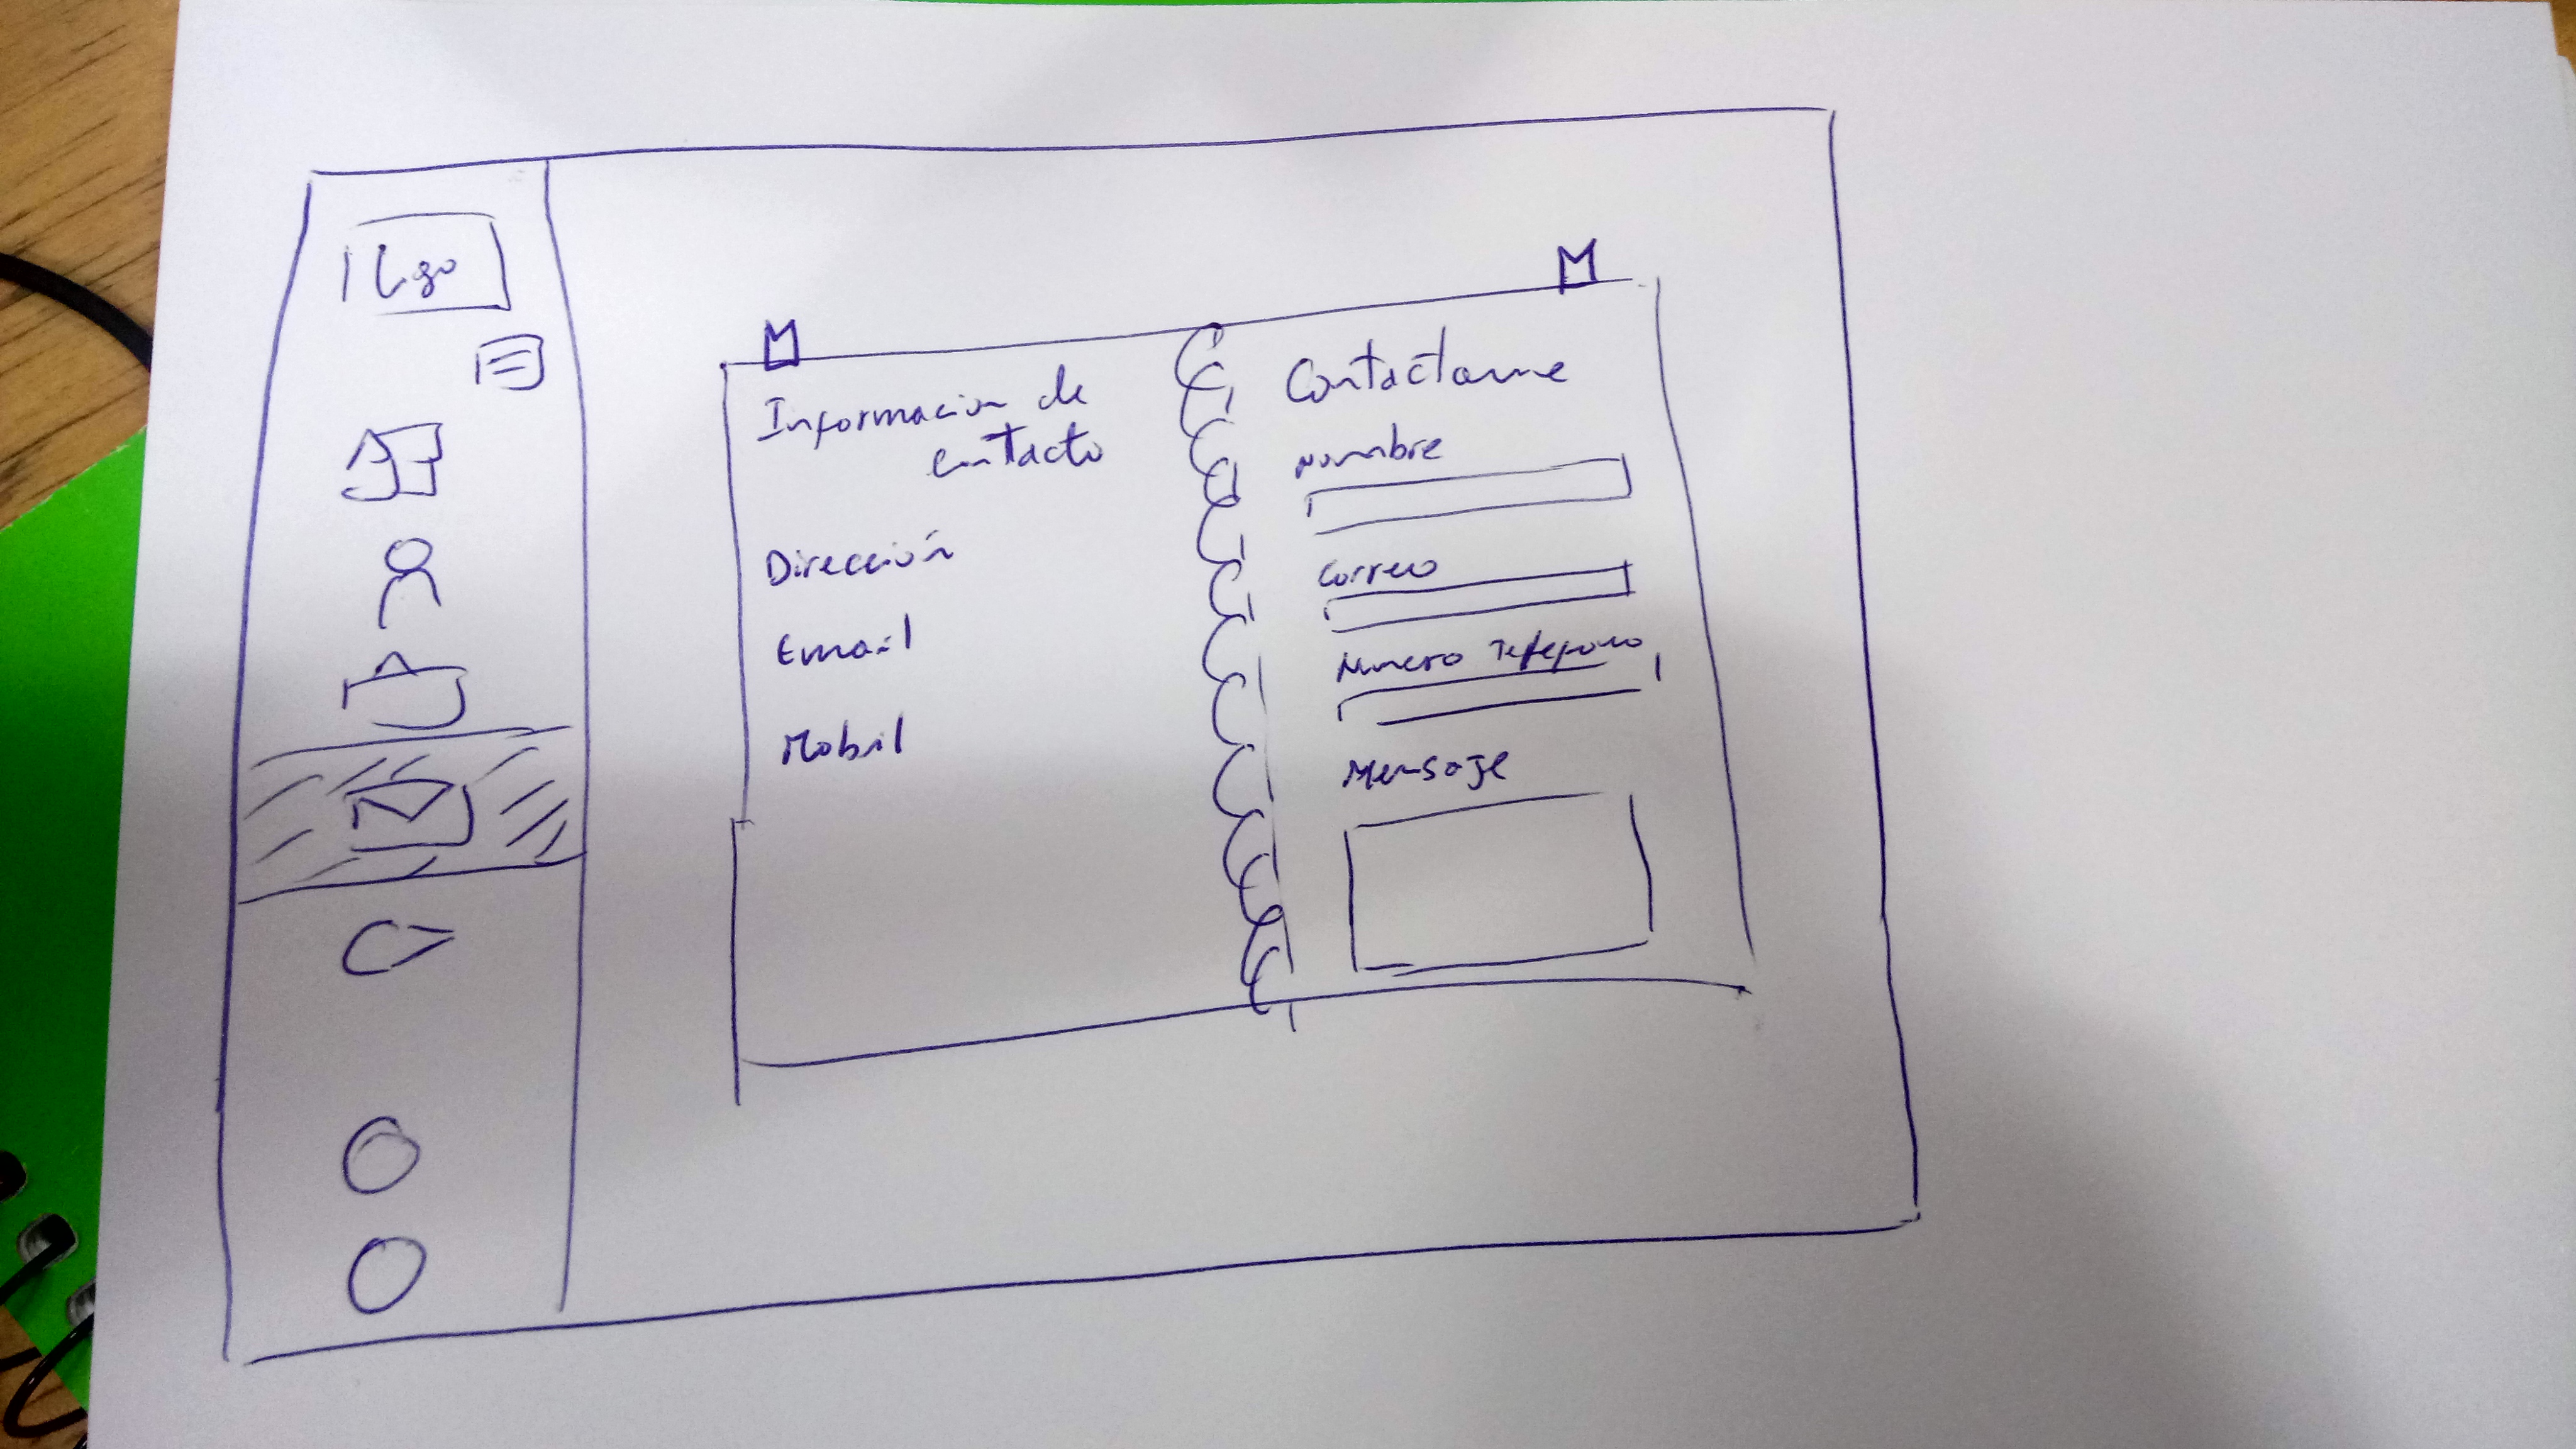 Logo
Informacion de
contacto
Dirección
Email
Mobil
Contactame
Nombre
Correo
Numero Telefono
Mensaje